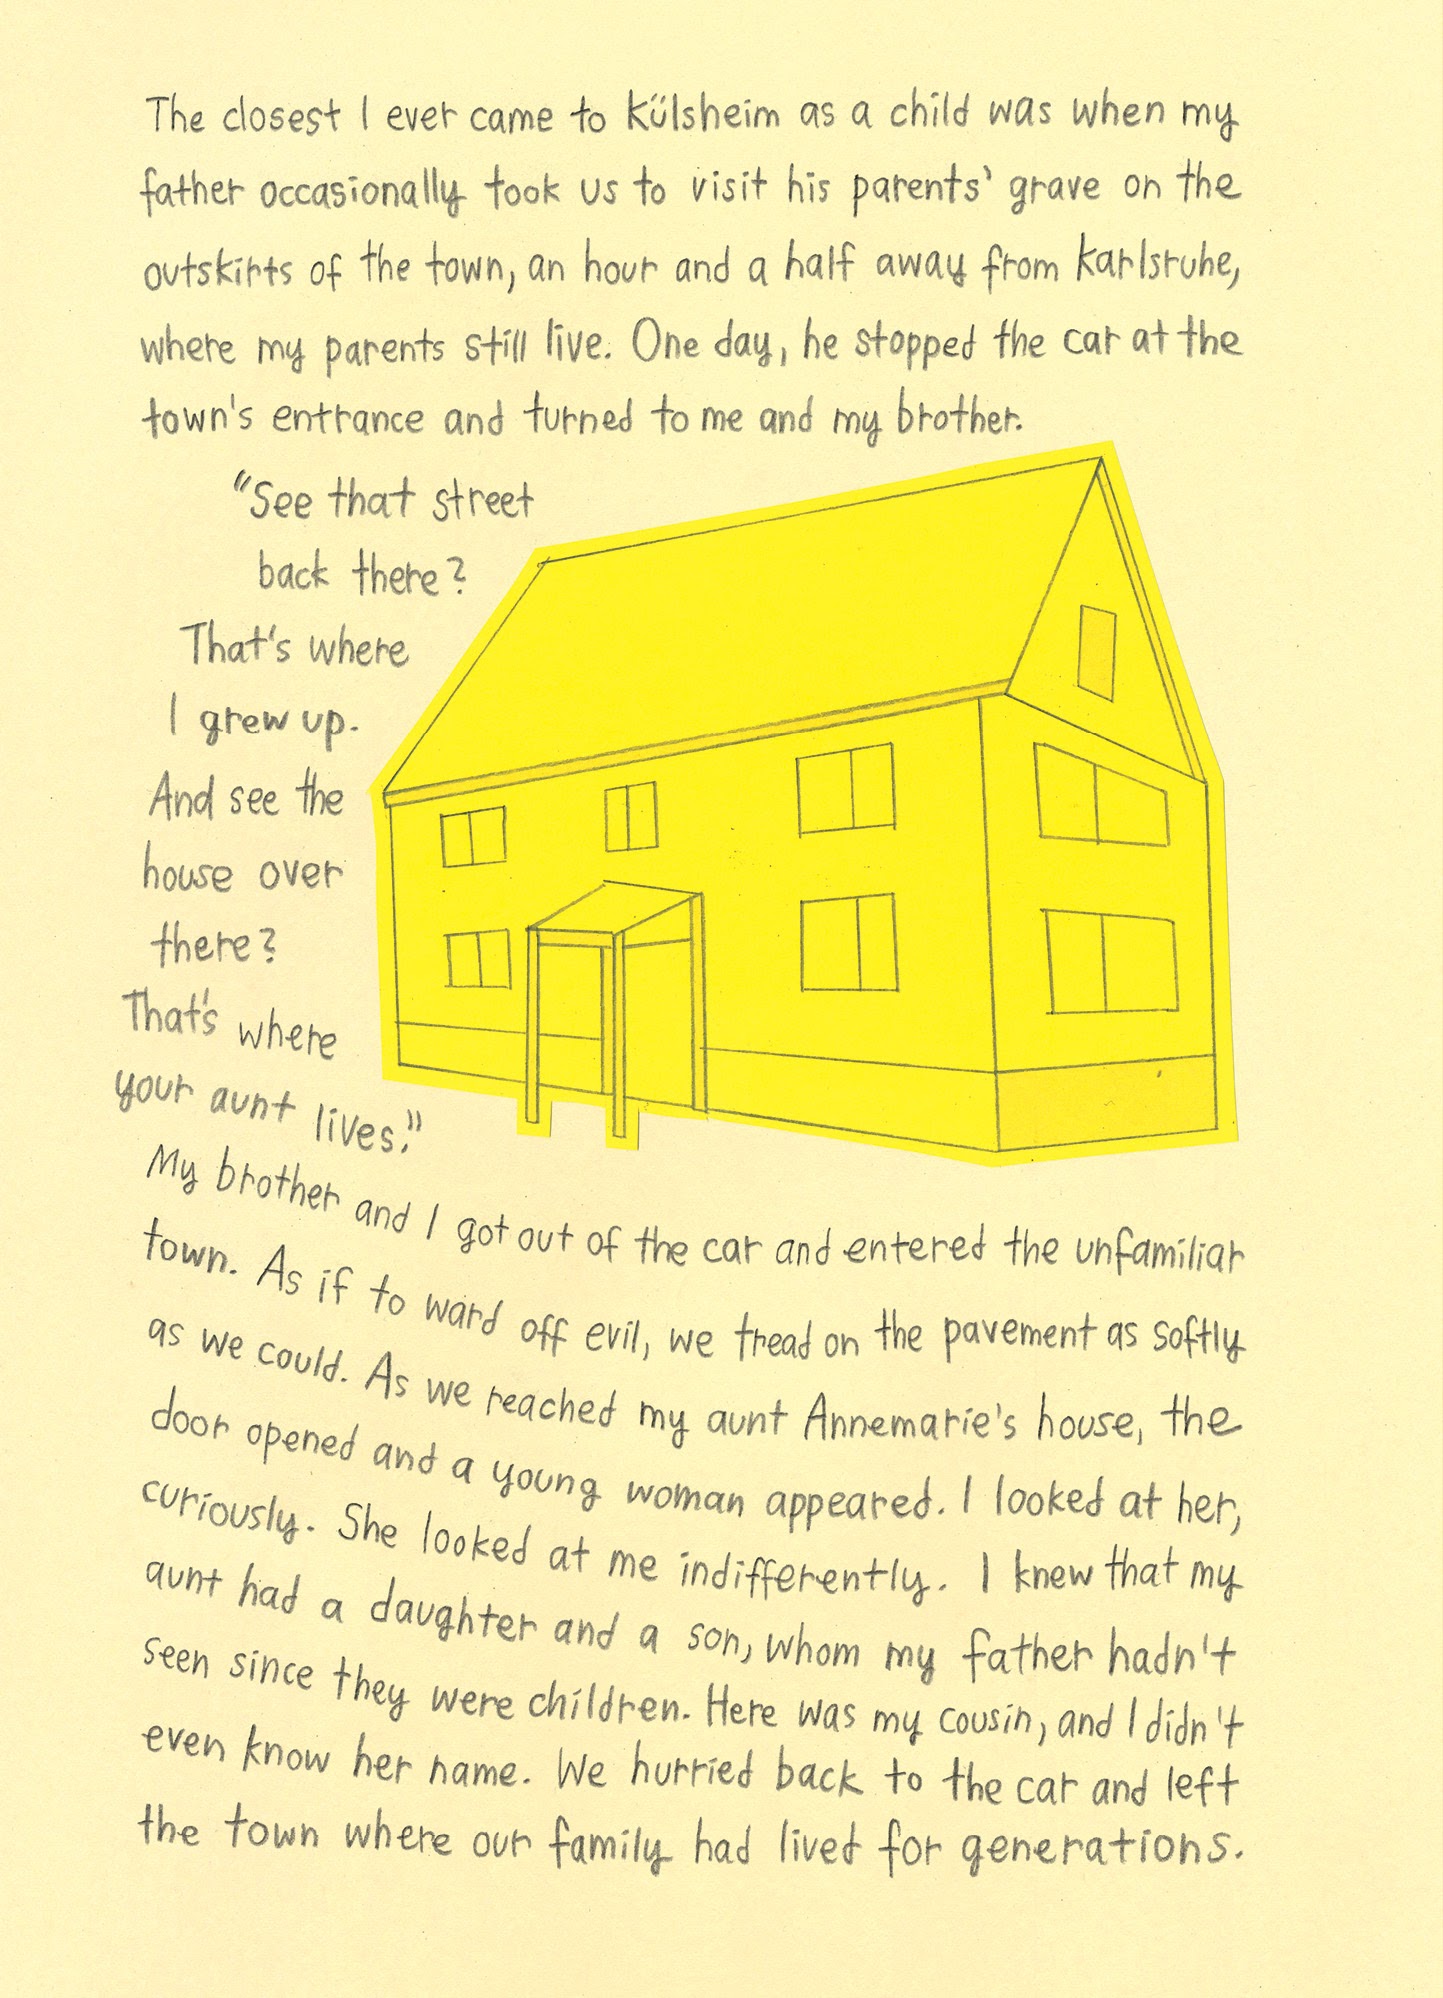 The closest I ever came to Külsheim as a child was when my
father occasionally took us to visit his parents' grave on the
outskirts of the town, an hour and a half away from Karlsruhe,
where my parents still live. One day, he stopped the car at the
town's entrance and turned to me and my brother.
"See that street
back there?
That's where
I grew up.
And see the
house over
there?
That's where
your aunt lives."
My brother and I got out of the car and entered the unfamiliar
town. As if to ward off evil, we tread on the pavement as softly
as we could. As we reached my aunt Annemarie's house, the
door opened and a young woman appeared. I looked at her,
curiously. She looked at me indifferently. I knew that my
aunt had a daughter and a son, whom my father hadn't
seen since they were children. Here was my cousin, and I didn't
even know her name. We hurried back to the car and left
the town where our family had lived for generations.